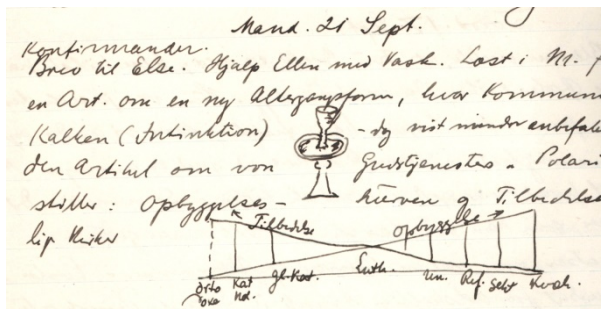 Mand. 21 Sept.
Konfirmander.
Brev til Else. Hjalp Ellen med Vask. Læst i M. f
en Art. om en ny Altergangsform, hvor Kommun
Kalken (Intinktion) - dog nist mindre anbefale
den Artikel om von Gudstjenestes - Polari
stiller: Opbyggelses- kirven og Tilbedelse
lige Kirker
Tilbedelse Opbyggelse
Orto doxe Kat hol. gl. Kat. Luth. Un. Ref. Sekt Kvæk.